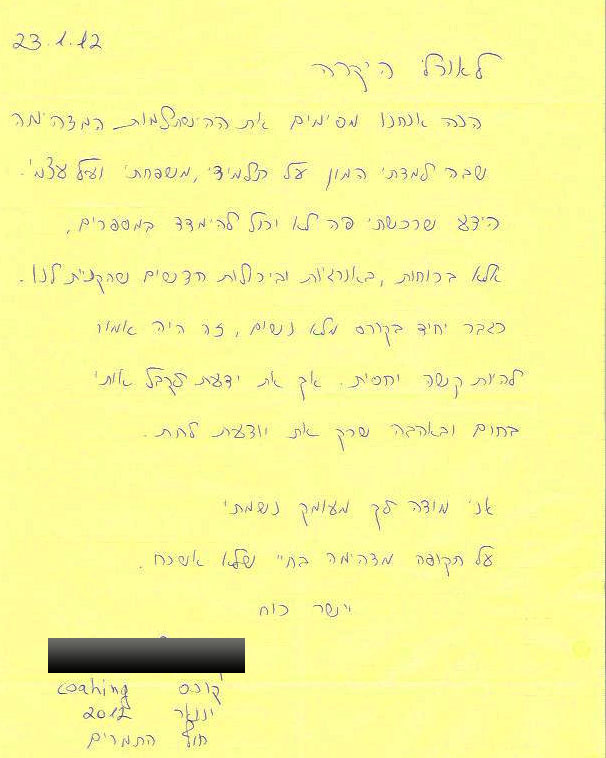 23.1.12
לאורלי היקרה
הנה אנחנו מסיימים את ההשתלמות המדהימה
שבה למדתי המון על תלמידי, משפחתי ועל עצמי.
הידע שרכשתי פה לא יכול להימדד במספרים,
אלא ברוחות, באנרגיות וביכולות חדשים שהקנית לנו.
כגבר יחיד בקורס מלא נשים, זה היה אמור
להיות קשה יחסית. אך את ידעת לקבל אותי
בחום ובאהבה שרק את יודעת לתת.
אני מודה לך מעומק נשמתי
על תקופה מדהימה בחיי שלא אשכח.
יישר כוח
קורס coahing
ינואר 2012
חוף התמרים